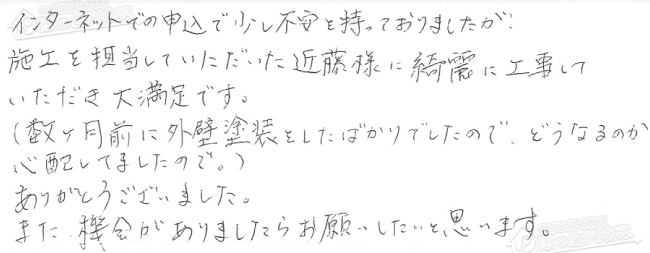 インターネットでの申込で少し不安を持っておりましたが、
施工を担当していただいた近藤様に綺麗に工事して
いただき大満足です。
(数ヶ月前に外壁塗装をしたばかりでしたので、どうなるのか
心配してましたので。)
ありがとうございました。
また機会がありましたらお願いしたいと思います。